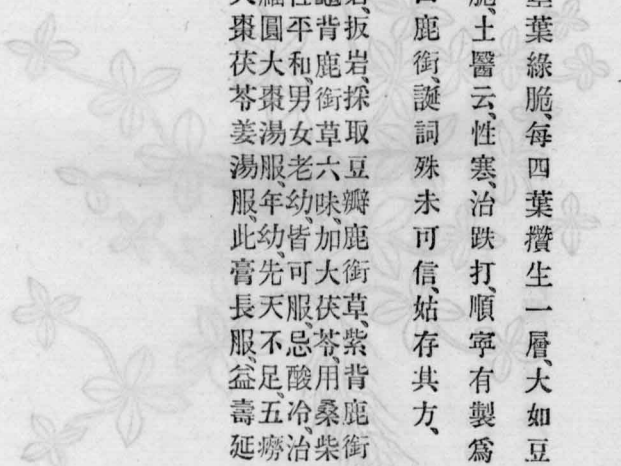 葉綠脆、每四葉攢生一層、大如豆
土醫云、性寒、治跌打、順寧有製爲
鹿銜、誕詞殊未可信、姑存其方、
扳岩、採取豆瓣鹿銜草、紫背鹿銜
背鹿銜草六味、加大茯苓、用桑柴
性平和、男女老幼、皆可服、忌酸冷、治
圓大棗湯服、年幼、先天不足、五癆
棗茯苓姜湯服、此膏長服、益壽延